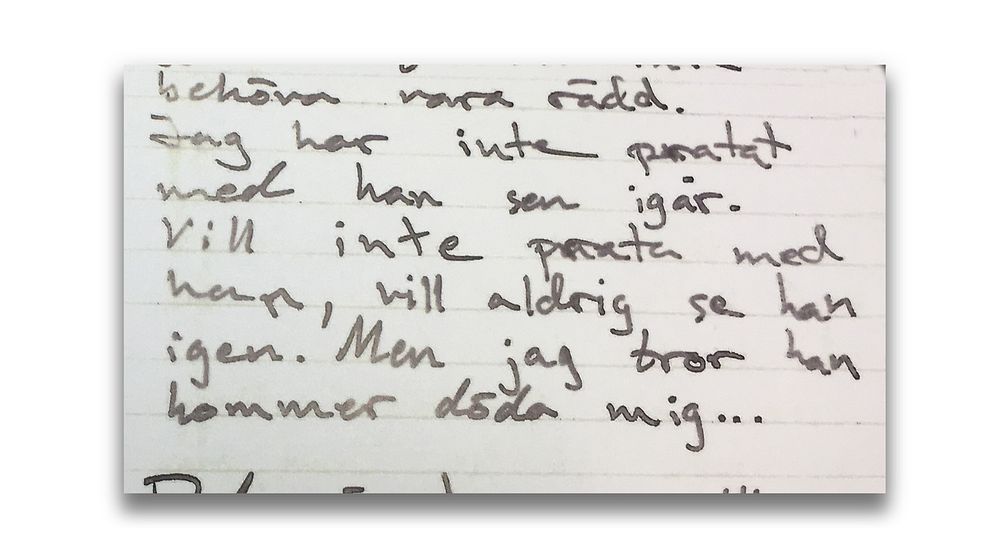 behöva vara rädd.
Jag har inte pratat
med han sen igår.
Vill inte prata med
han, vill aldrig se han
igen. Men jag tror han
kommer döda mig...